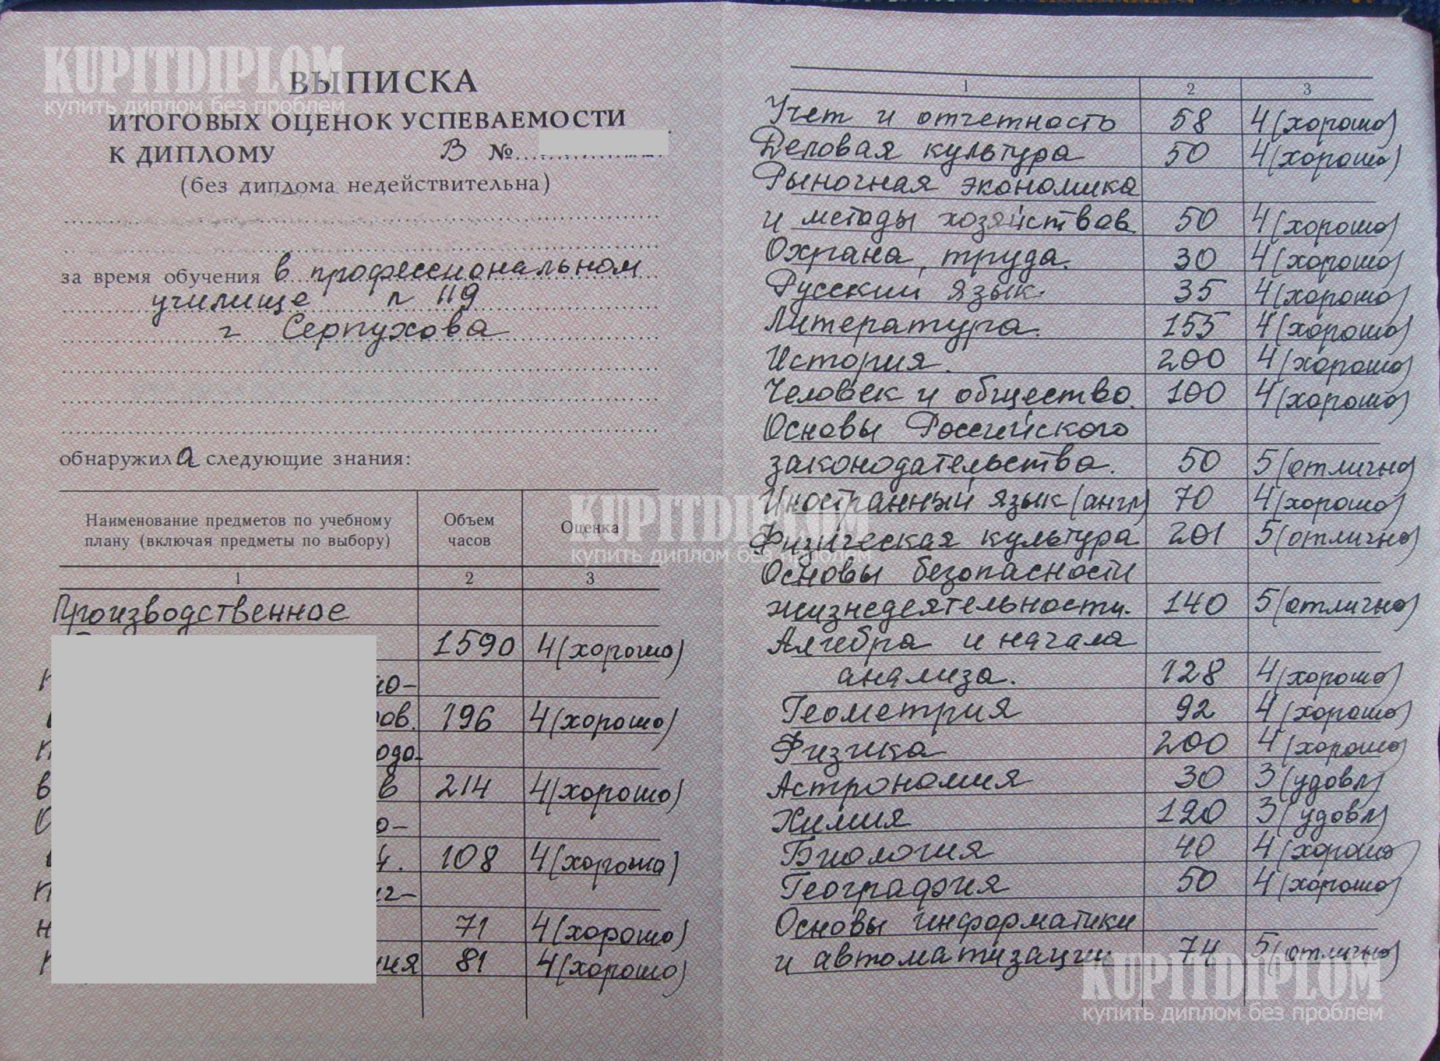 KUPITDIPLOM
купить диплом без проблем
ВЫПИСКА
ИТОГОВЫХ ОЦЕНОК УСПЕВАЕМОСТИ
К ДИПЛОМУ В №
(без диплома недействительна)
за время обучения в профессиональном
училище п 119
г Серпухова
обнаружила следующие знания:
Наименование предметов по учебному плану (включая предметы по выбору) Объем часов Оценка
1 2 3
Производственное
1590 4(хорошо)
ио-
ов. 196 4(хорошо)
одо-
в в 214 4(хорошо)
о-
108 4(хорошо)
71 4(хорошо)
ния 81 4(хорошо)
1 2 3
Учет и отчетность 58 4(хорошо)
Деловая культура 50 4(хорошо)
Рыночная экономика
и методы хозяйствов. 50 4(хорошо)
Охрана труда. 30 4(хорошо)
Русский язык. 35 4(хорошо)
Литература. 155 4(хорошо)
История. 200 4(хорошо)
Человек и общество. 100 4(хорошо)
Основы Российского
законодательства. 50 5(отлично)
Иностранный язык(англ) 70 4(хорошо)
Физическая культура 201 5(отлично)
Основы безопасности
жизнедеятельности. 140 5(отлично)
Алгебра и начала
анализа. 128 4(хорошо)
Геометрия 92 4(хорошо)
Физика 200 4(хорошо)
Астрономия 30 3(удовл)
Химия 120 3(удовл)
Биология 40 4(хорошо)
География 50 4(хорошо)
Основы информатики
и автоматизации 74 5(отлично)
KUPITDIPLOM
купить диплом без проблем
KUPITDIPLOM
купить диплом без проблем